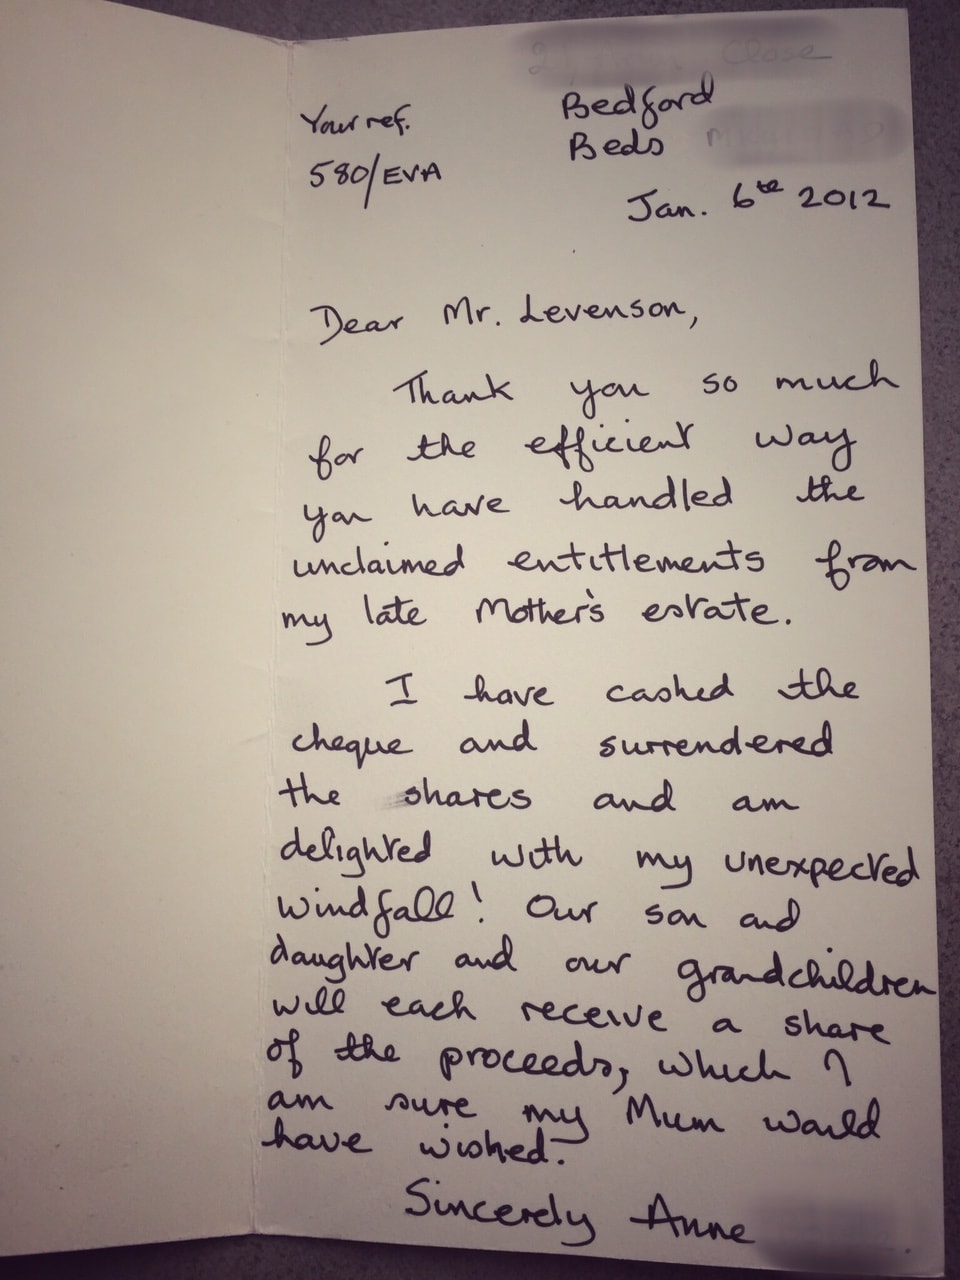 Close
Your ref.
580/EVA
Bedford
Beds
Jan. 6th 2012
Dear Mr. Levenson,
Thank you so much
for the efficient way
you have handled the
unclaimed entitlements from
my late Mother's estate.
I have cashed the
cheque and surrendered
the shares and am
delighted with my unexpected
windfall! Our son and
daughter and our grandchildren
will each receive a share
of the proceeds, which I
am sure my Mum would
have wished.
Sincerely Anne